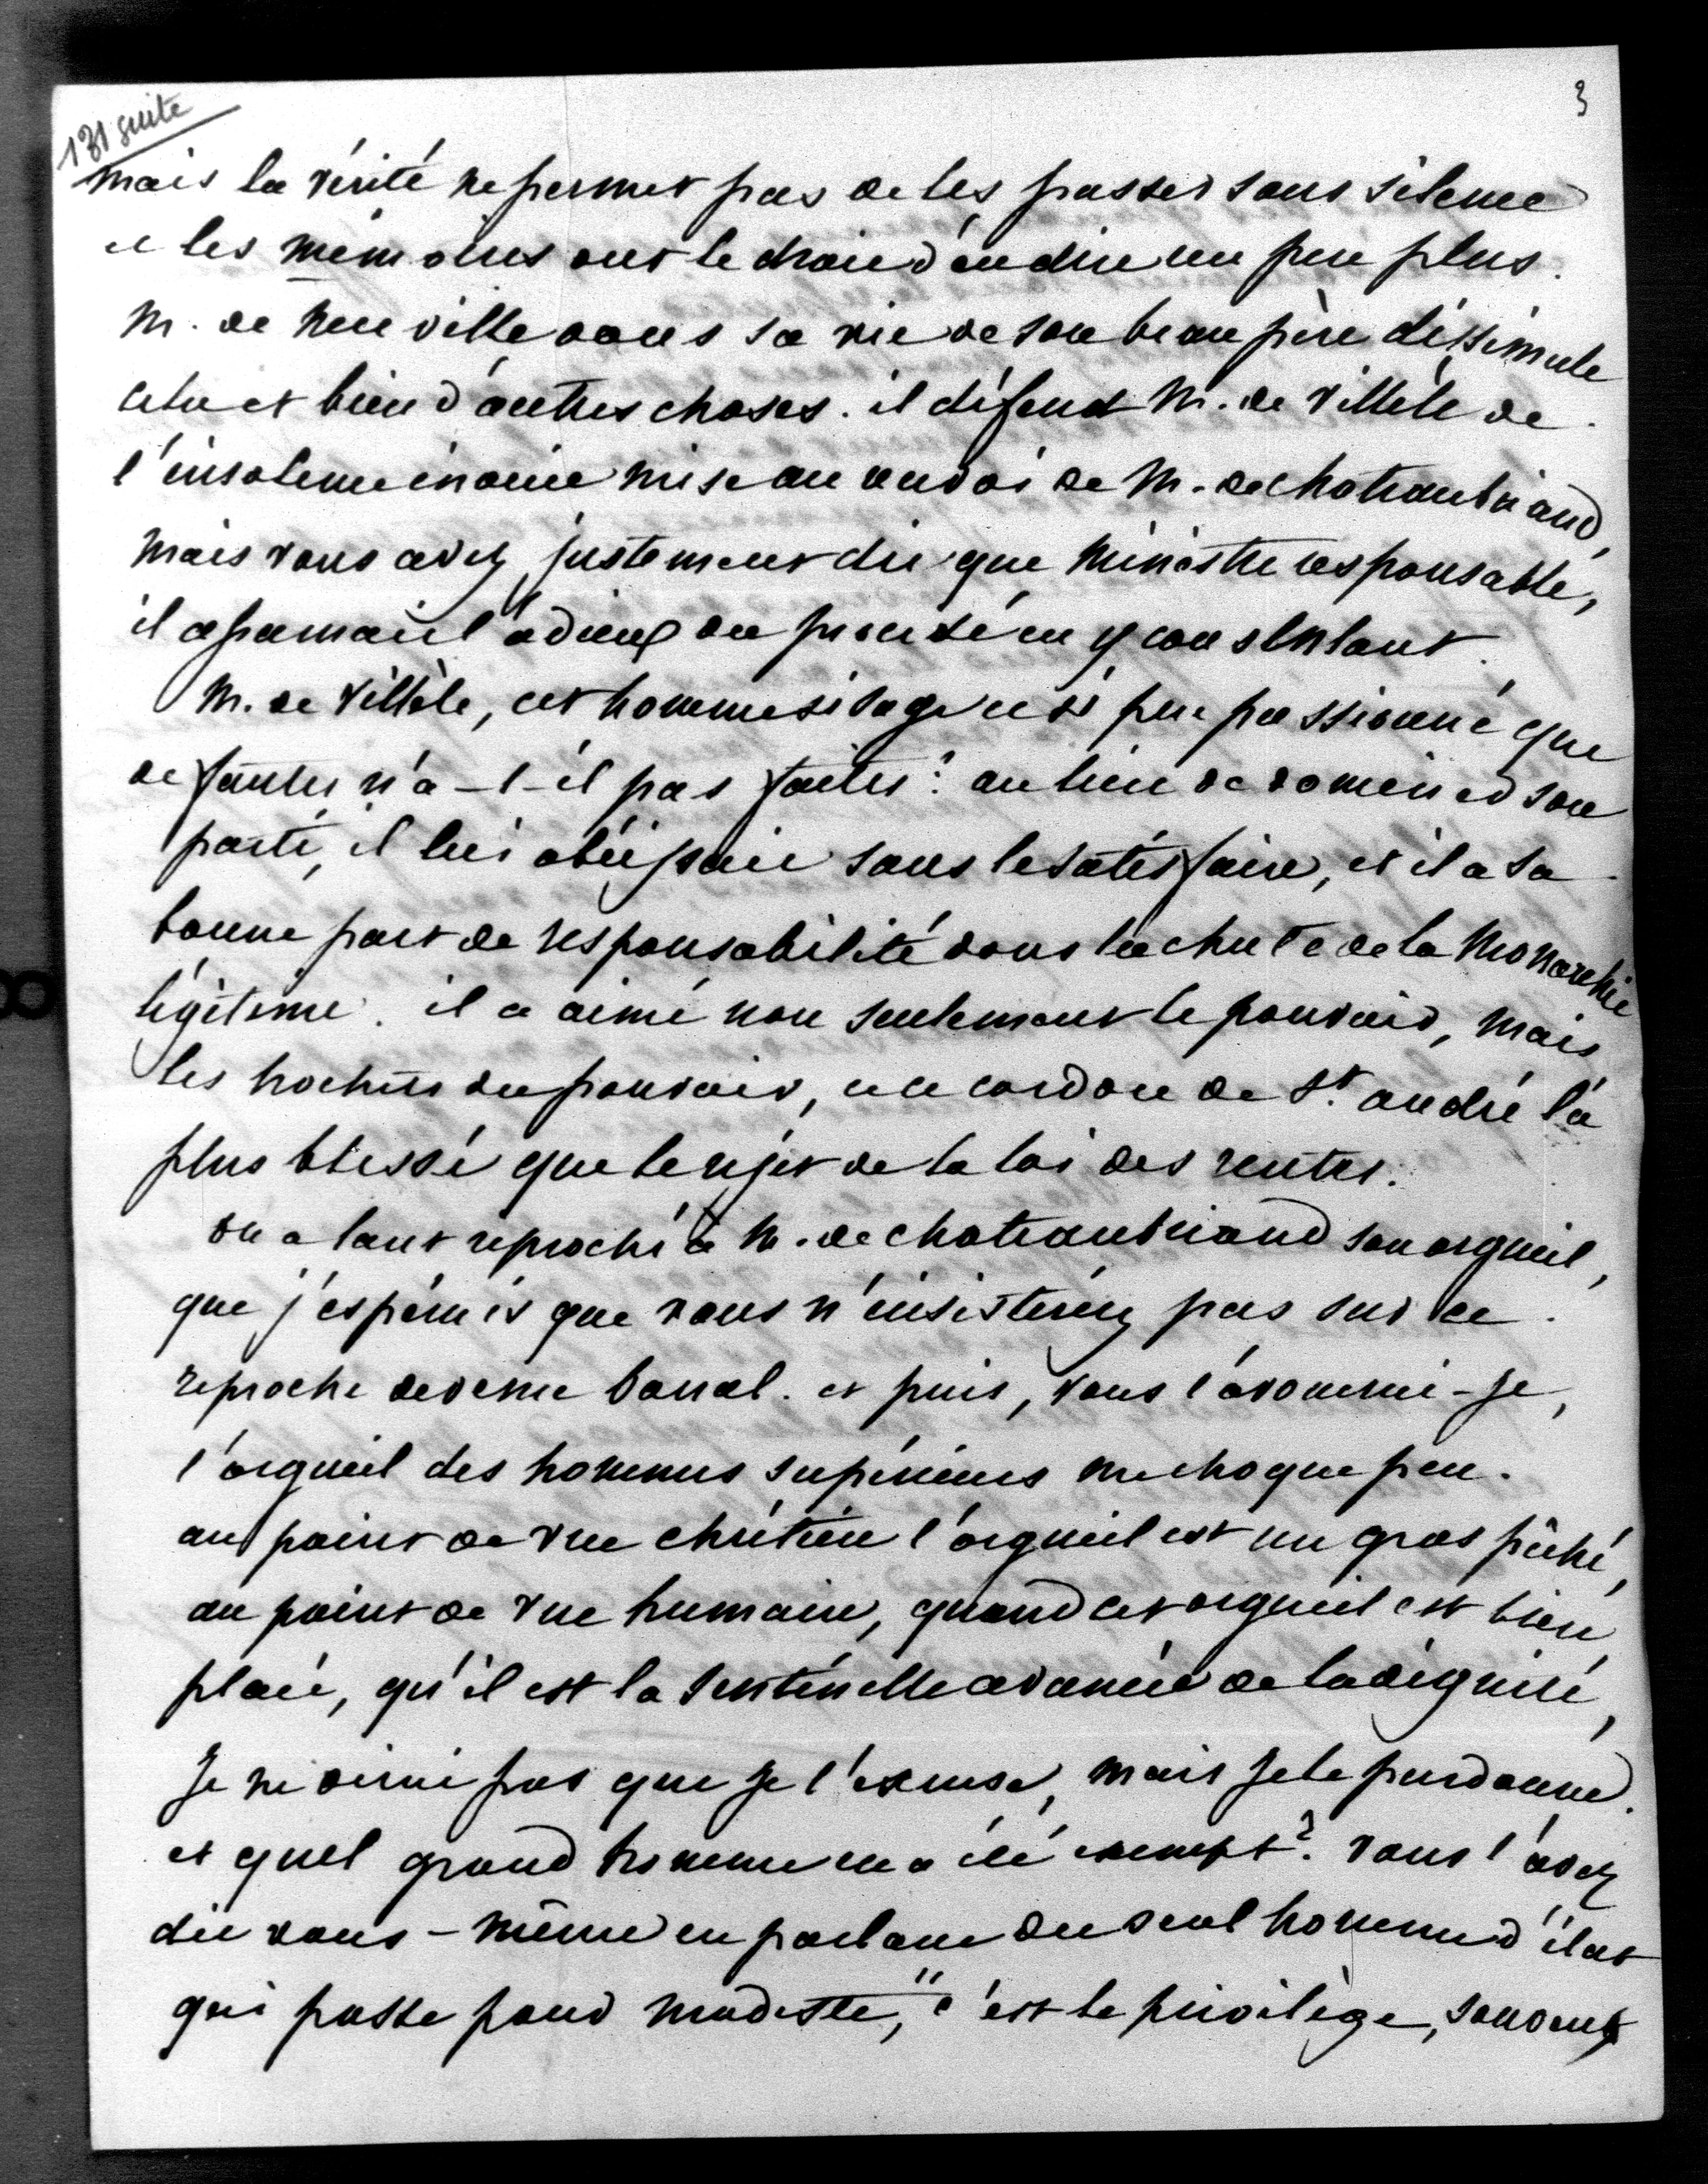 131 suite
3
mais la vérité ne permet pas de les passer sous silence
et les mémoires ont le droit d'en dire un peu plus.
M. de Neuville dans sa vie de son beau père dissimule
cela et bien d'autres choses. il défend M. de Villèle de
l'insolence inouie mise au renvoi de M. de chateaubriand,
mais vous avez justement dit que Ministre responsable,
il assumait l'odieux du procédé en y consentant.
M. de Villèle, cet homme si sage et si peu passionné que
de fautes n'a-t-il pas faites? au lieu de dominer son
parti, il lui obéissait sans le satisfaire, et il a sa
bonne part de responsabilité dans la chute de la Monarchie
légitime. il a aimé non seulement le pouvoir, mais
les hochets du pouvoir, et ce cordon de St. andré l'a
plus blessé que le rejet de la loi des rentes.
on a tant reproché à M. de chateaubriand son orgueil,
que j'espérais que vous n'insisteriez pas sur ce
reproche devenu banal. et puis, vous l'avouerai-je,
l'orgueil des hommes supérieurs me choque peu.
au point de vue chrétien l'orgueil est un gros péché,
au point de vue humain, quand cet orgueil est bien
placé, qu'il est la sentinelle avancée de la dignité,
Je ne dirai pas que je l'excuse, mais je le pardonne.
et quel grand homme en a été exempt? vous l'avez
dit vous-même en parlant du seul homme d'état
qui passe pour modeste, "c'est le privilège, souvent